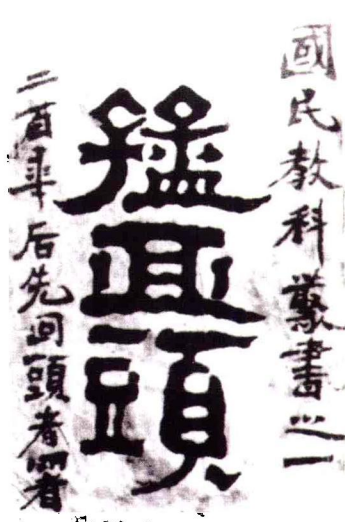 國民教科叢書之一
猛回頭
二百年后先回頭者署